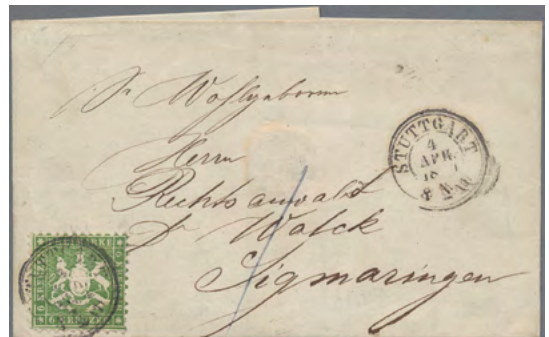 Sr Wohlgeboren
Herrn
Rechtsanwalt
Dr Walck
Sigmaringen
STUTTGART
4
APR.
18
6 KREUZER